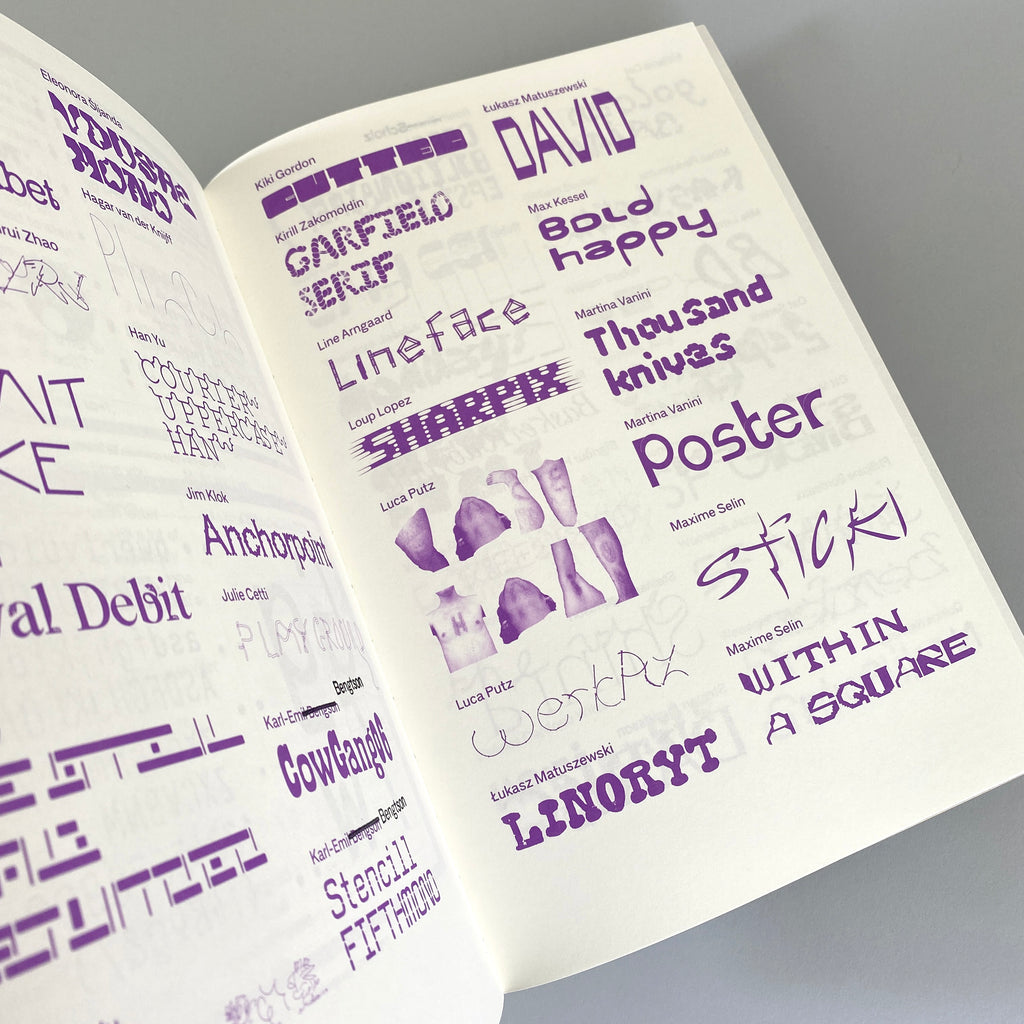 Eleonora Šljanda
MONO
bet
Hagar van der Knijff
rui Zhao
Han Yu
COURIER
UPPERCASE
HAN
AIT
KE
Jim Klok
Anchorpoint
val Debit
Julie Cetti
PLAYGROUND
Karl-Emil Bengtson Bengtson
CowGang06
Karl-Emil Bengtson Bengtson
Stencill
FIFTHMONO
Kiki Gordon
CUTTED
Kirill Zakomoldin
GARFIELD
SERIF
Line Arngaard
Lineface
Loup Lopez
SHARPIX
Luca Putz
Luca Putz
werkPlz
Łukasz Matuszewski
LINORYT
Łukasz Matuszewski
DAVID
Max Kessel
Bold
happy
Martina Vanini
Thousand
knives
Martina Vanini
Poster
Maxime Selin
STICKI
Maxime Selin
WITHIN
A SQUARE